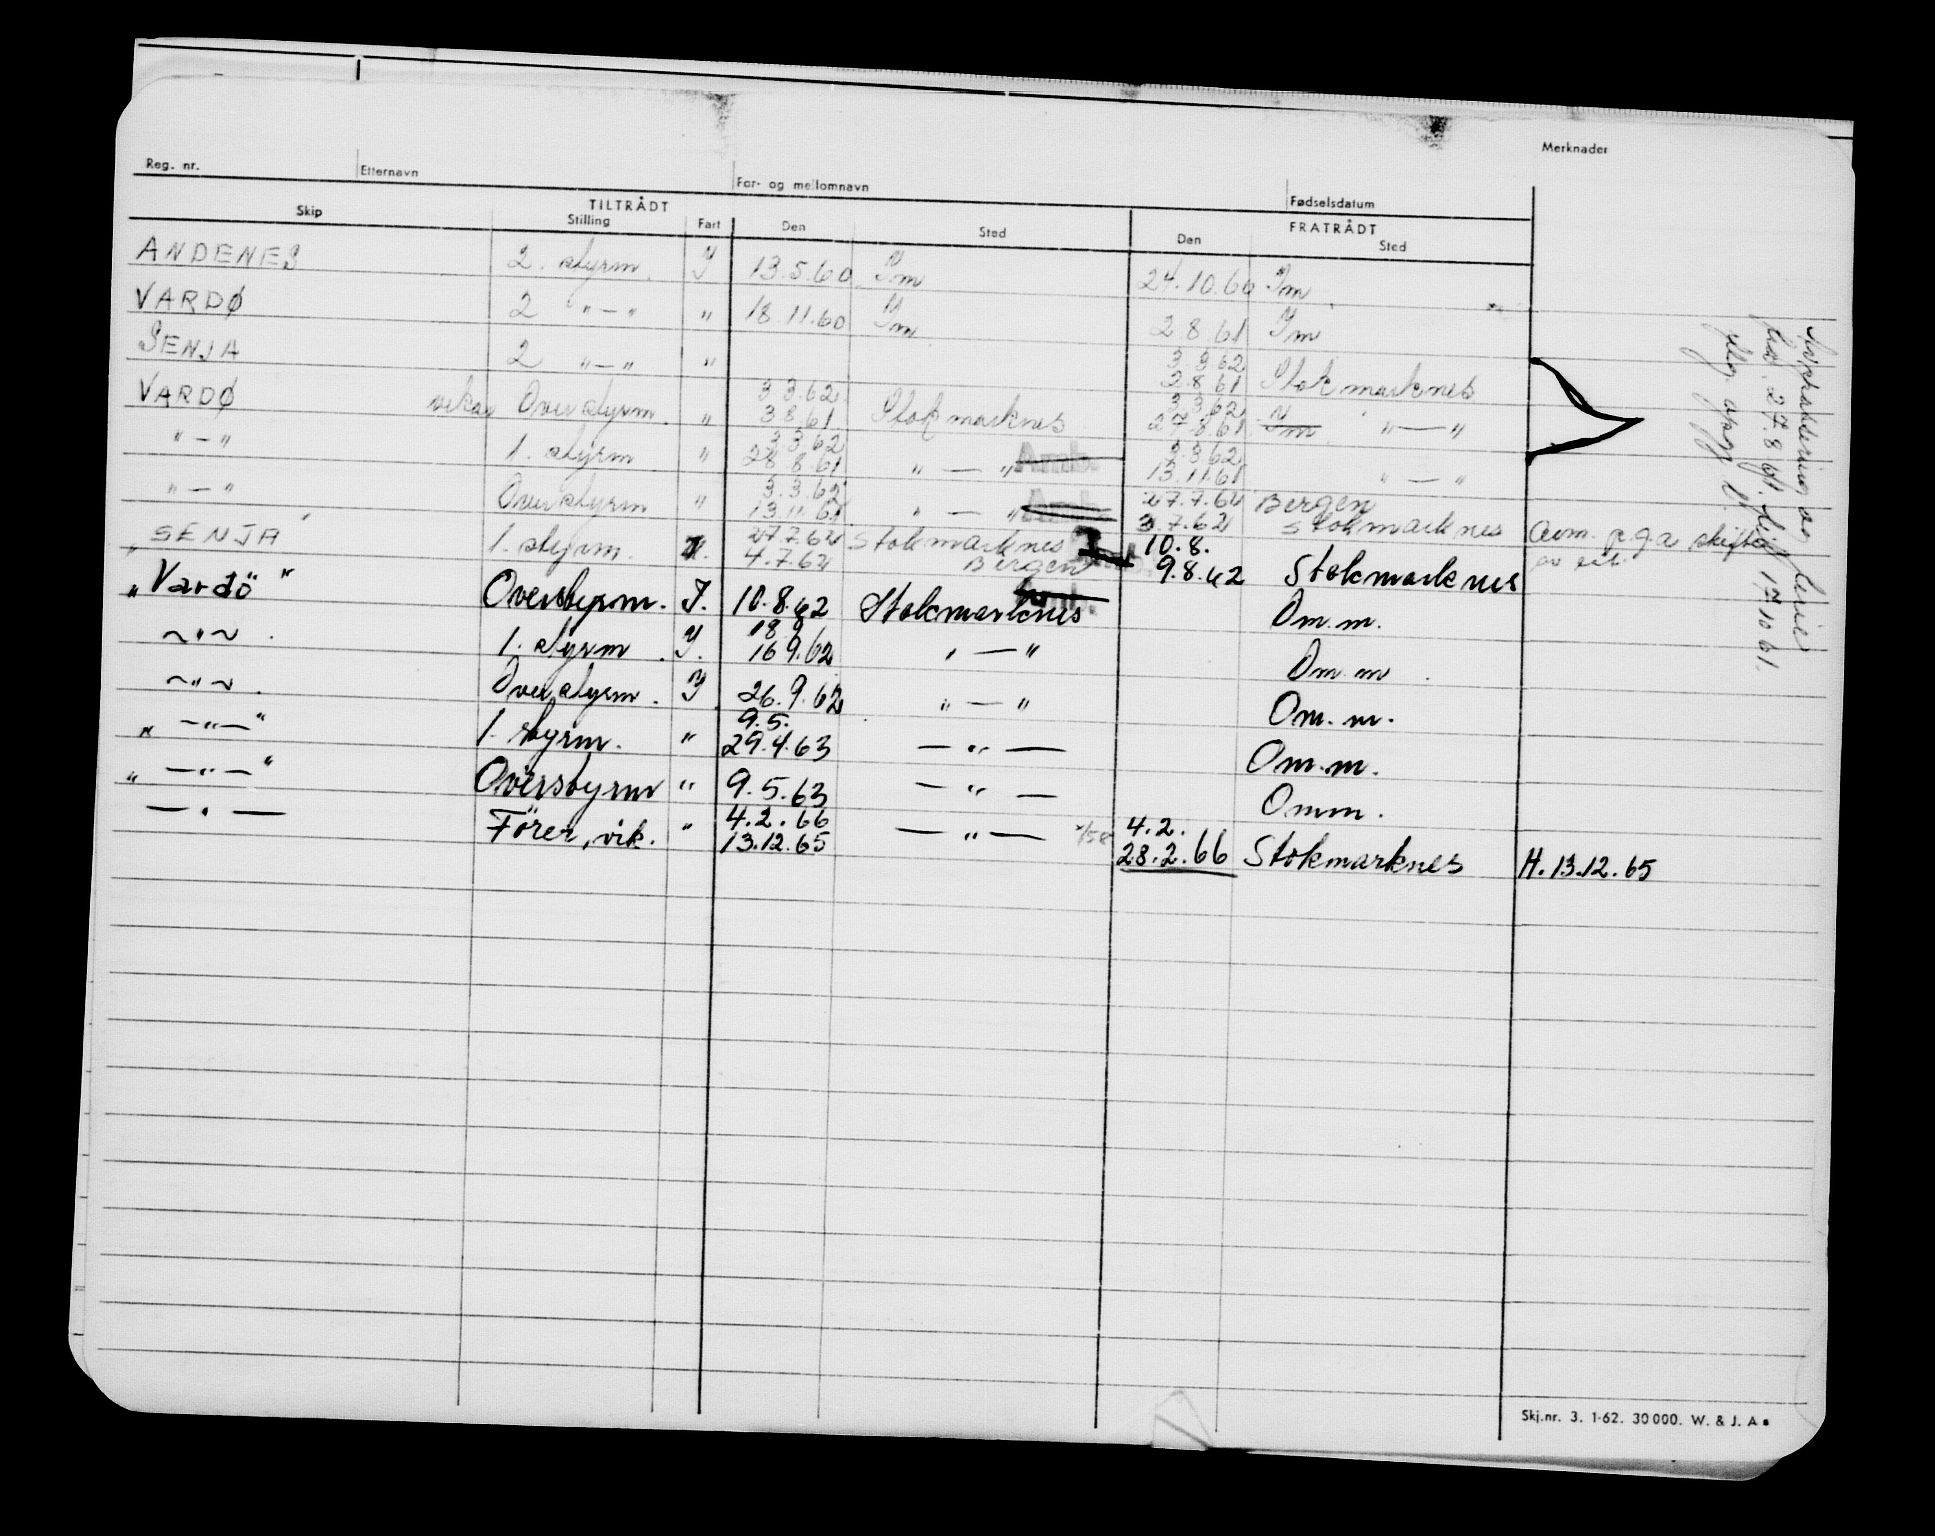 Merknader
Reg. nr. Etternavn For- og mellomnavn Fødselsdatum
TILTRÅDT FRATRÅDT
Skip Stilling Fart Den Sted Den Sted
ANDENES 2. styrm. I 13.5.60 Im 24.10.60 Im
VARDØ 2 "—" " 18.11.60 Im 2.8.61 Im
SENJA 2 "—" " 3 3 62 2.8 61 Stokmarknes
VARDØ Overstyrm. " 3 3.62 3 8.61 Stokmarknes 3 3.62 27.8.61 Im "—"
"—" 1. styrm " 3 3 62 28 8.61 "—" Amb. 3.3.62 13.11.61 "—"
"—" Overstyrm " 3.3.62 13.11.61 "—" Amb. 27.7.62 Bergen
3.7.62 Stokmarknes
"SENJA" 1. styrm. I. 27.7.62 Stokmarknes 10.8.
4.7.62 Bergen 9.8.62 Stokmarknes
Avm. p.g.a skifte
"Vardö" Overstyrm. I. 10.8.62 Stokmarknes Amb. Om.m.
~"~ . 1. styrm. I. 18 9 16 9.62 "—" Om.m.
~"~ . Overstyrm. I 26.9.62 "—" Om.m.
" —"—" 1. styrm. " 9.5. 29.4.63 —"— Om.m.
" —"—" Overstyrm " 9.5.63 —"— Omm.
—"— Förer, vik. " 4.2.66 13.12.65 —"— 4.2. 28.2.66 Stokmarknes H. 13.12.65
ferie
27.8.61 17 10 61.
Skj.nr. 3. 1-62. 30 000. W. & J. A